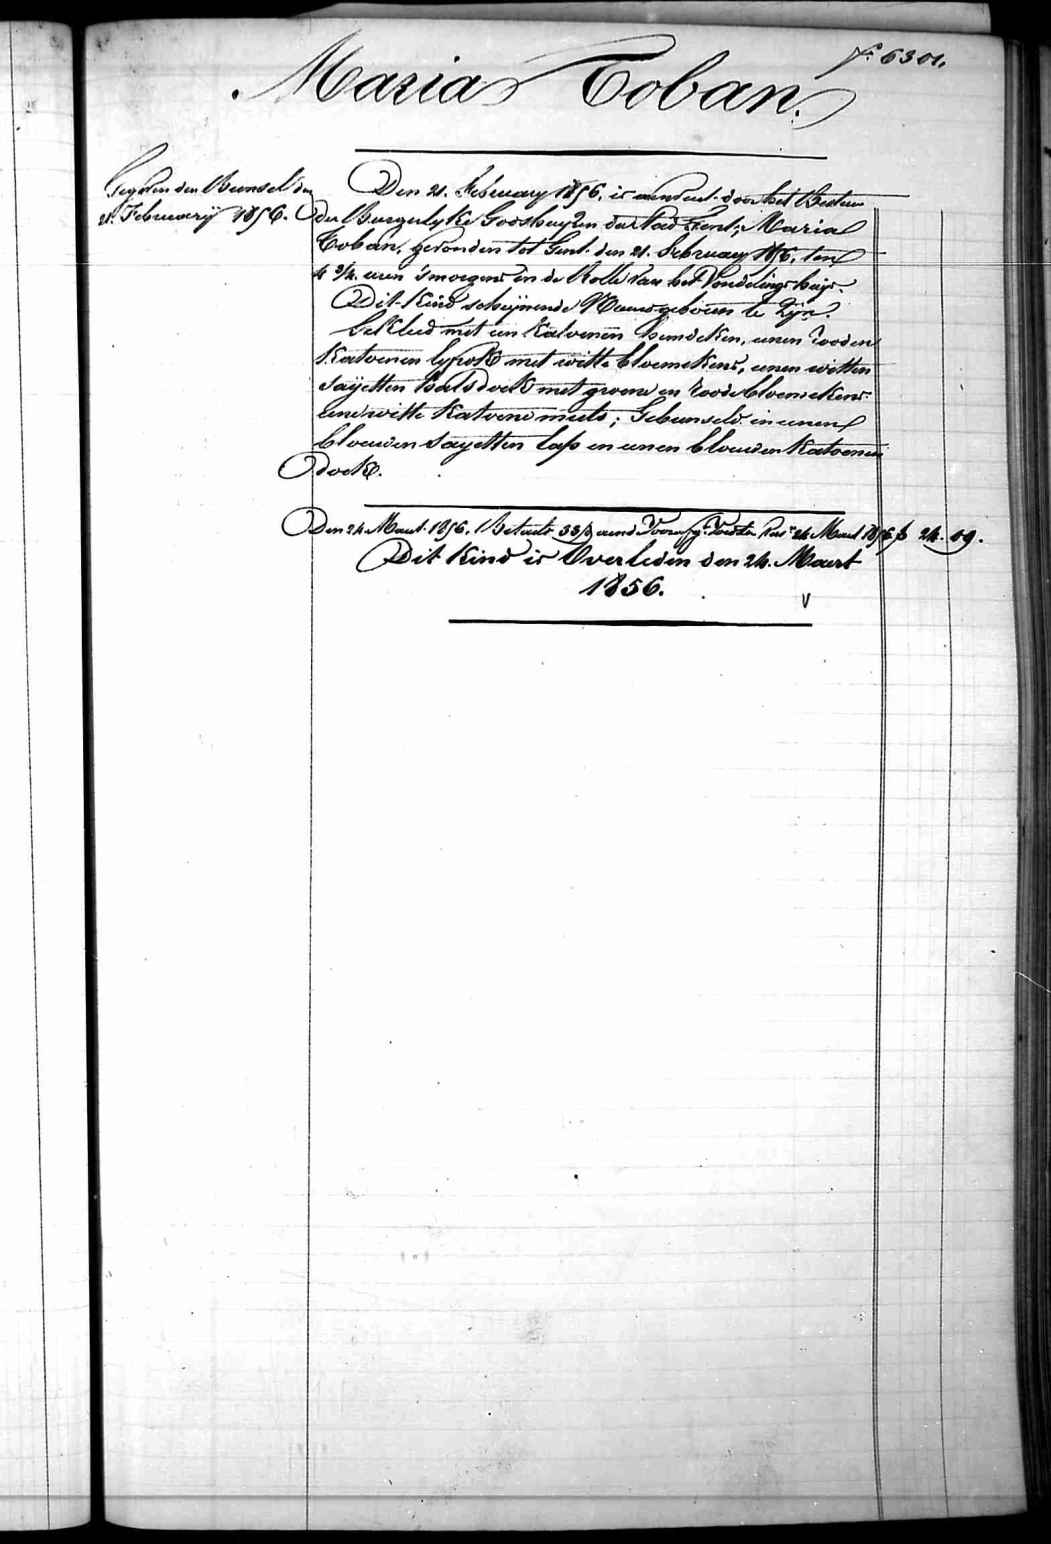 fo 6301.
Maria Toban.
Gegeven den Bunsel den
21. February 1856.
Den 21. February 1856, is aenveert door het Bestuer
der Burgerlyke Godshuyzen der Stad Gent; Maria
Toban, gevonden tot Gent den 21. February 1856, ten
4 3/4 uren 's morgens in de Rolle van het Vondelingshuys.
Dit Kind schynende Nieuwgeboren te Zyn.
Gekleed met een Katoenen hemdeken, eenen rooden
Katoenen lyfrok met witte bloemekens, eenen witten
sayetten halsdoek met groene en roode bloemekens
eene witte Katoene muts; Gebunseld in eenen
blouwen sayetten lap en eenen blouwen Katoenen
doek.
Den 24 Maert 1856. Betaeld 33 d 24 Maert 1856 f 24. 09.
Dit Kind is Overleden den 24. Maert
1856.